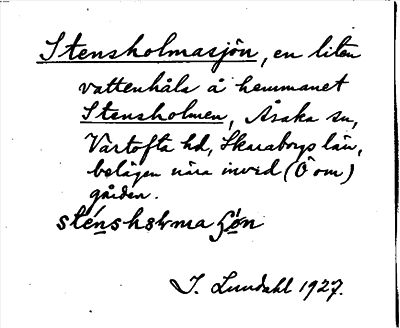 Stensholmasjön, en liten
vattenhåla å hemmanet
Stensholmen, Åsaka sn,
Vartofta hd, Skaraborgs län,
belägen nära invid (Ö om)
gården.
I. Lundahl 1927.